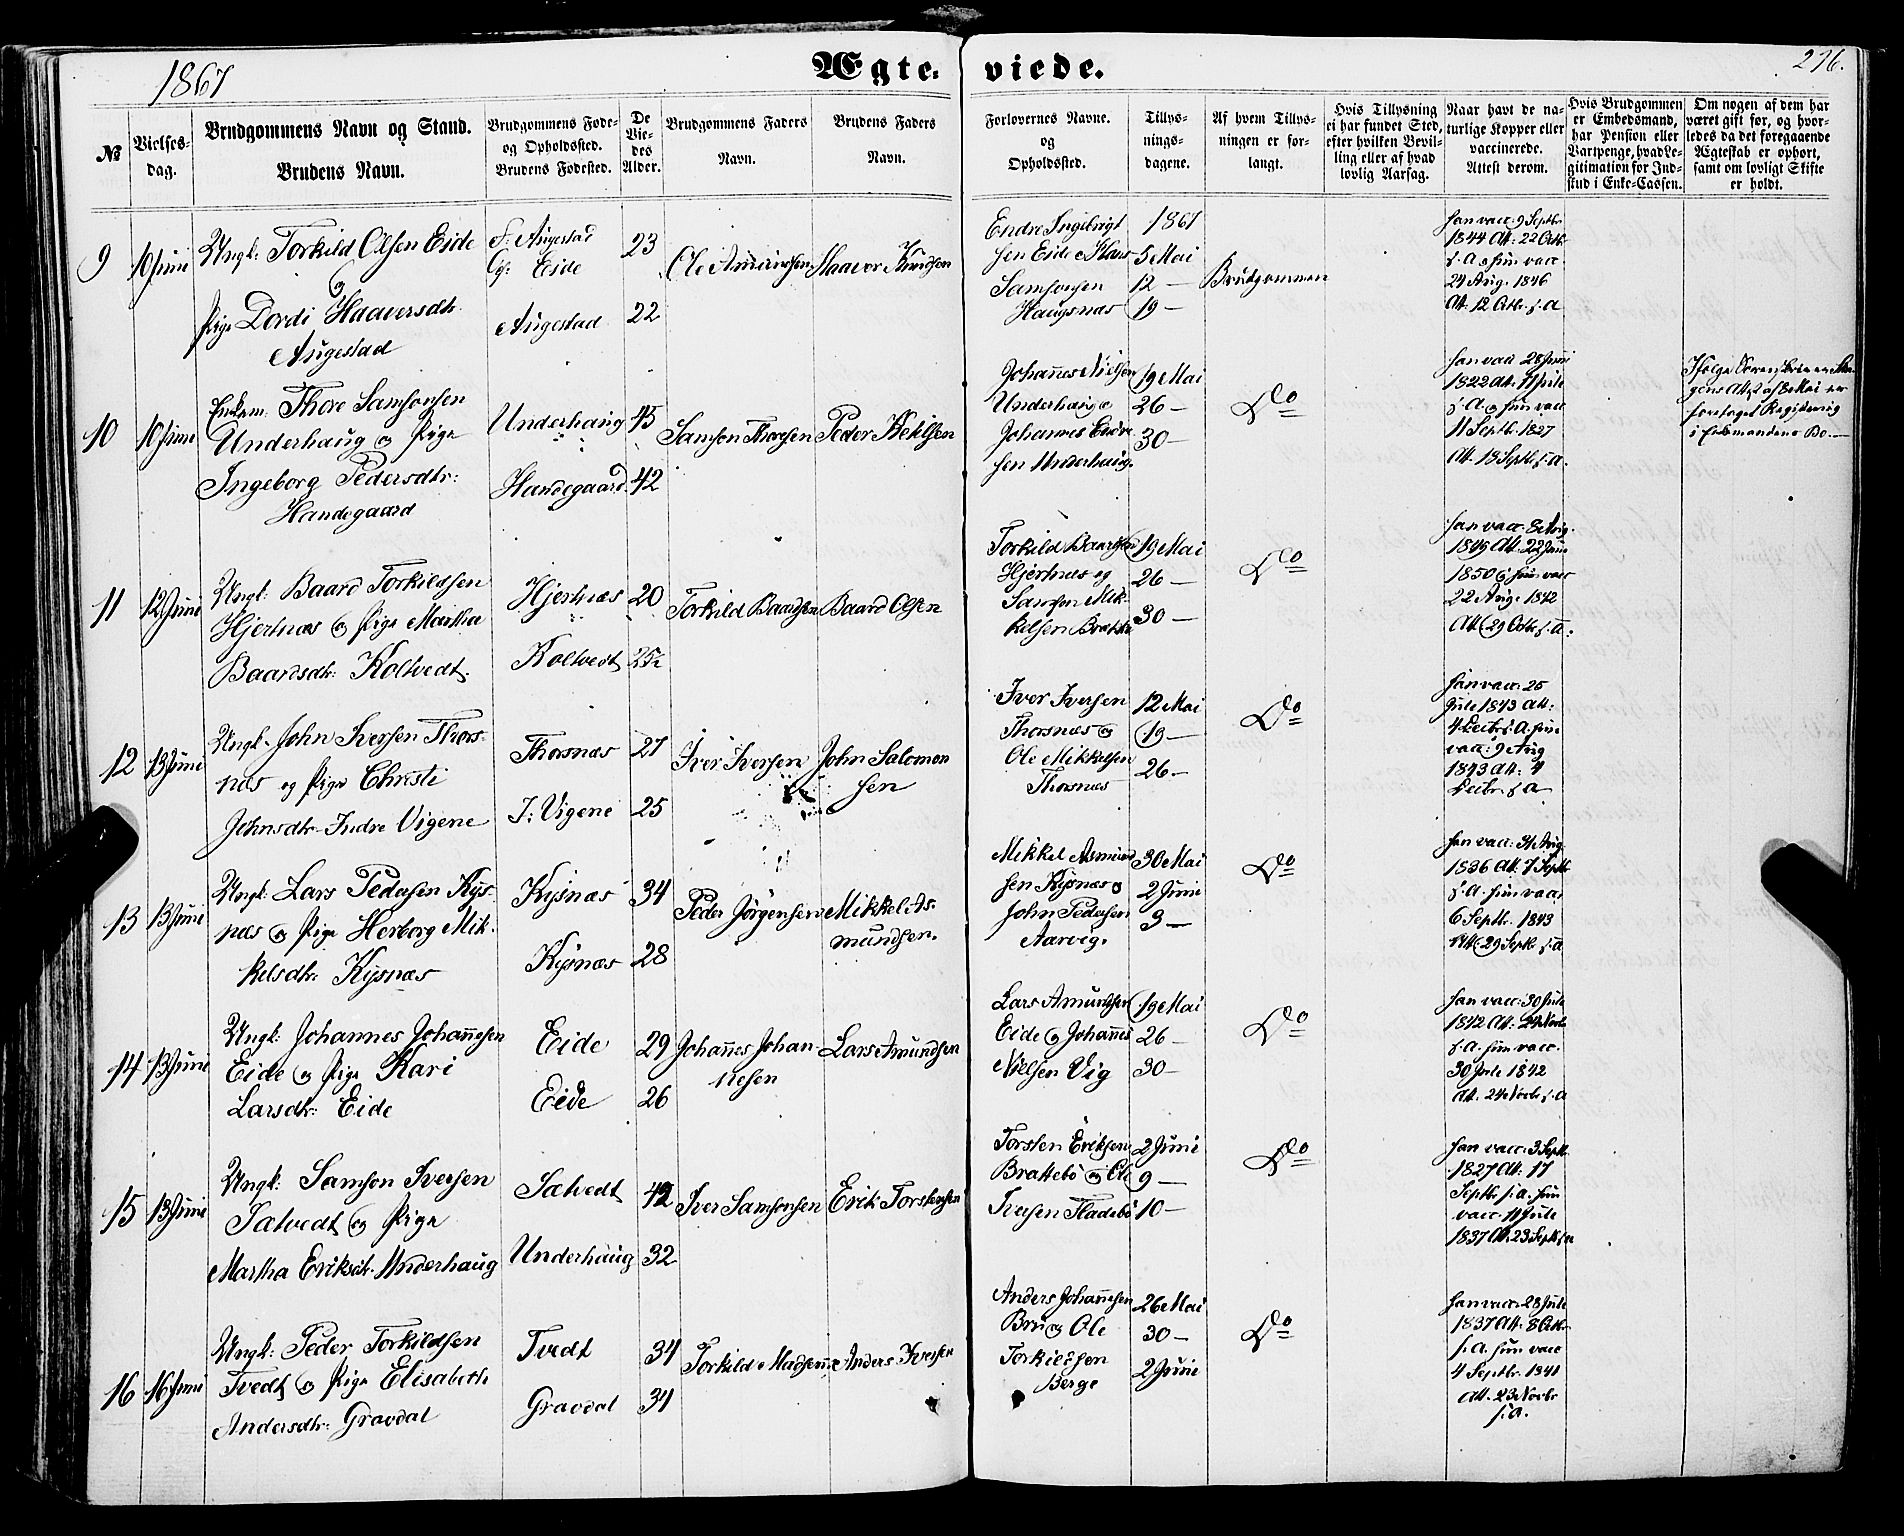 1867
Ægteviede.
276.
№
Vielses-
dag.
Brudgommens Navn og Stand.
Brudens Navn.
Brudgommens Føde-
og Opholdssted.
Brudens Fødested.
De
Vie-
des
Alder.
Brudgommens Faders
Navn.
Brudens Faders
Navn.
Forlovernes Navne.
og
Opholdssted.
Tillys-
nings-
dagene.
Af hvem Tillys-
ningen er for-
langt.
Hvis Tillysning
ei har fundet Sted,
efter hvilken Bevil-
ling eller af hvad
lovlig Aarsag.
Naar havt de na-
turlige Kopper eller
vaccinerede.
Attest derom.
Hvis Brudgommen
er Embedsmand,
har Pension eller
Vartpenge, hvad Le-
gitimation for Ind-
skud i Enke-Cassen.
Om nogen af dem har
været gift før, og hvor-
ledes da det foregaaende
Ægteskab er ophørt,
samt om lovligt Skifte
er holdt.
9
10 Juni
Ungk: Torkild Olsen Eide
og
Pige Dordi Haaversdtr
Augestad
F: Augestad
Op: Eide
Augestad
23
22
Ole Amundsen
Haavor Knudsen
Endre Ingebrigt
sen Eide Hans
Samsonsen
Haugsnæs
1867
5 Mai
12 —
19 —
Brudgommen
han vacc: 9 Septbr
1844 Att: 22 Octbr
s. A. hun vacc
24 Aug. 1846
Att. 12 Octbr. s. a
10
10 Juni
Enkem: Thore Samsonsen
Underhaug og Pige
Ingeborg Pedersdtr:
Handegaard
Underhaug
Handegaard
45
42
Samson Thoresen
Peder Ketilsen
Johannes Nielsen
Underhaug
Johannes Endre
sen Underhaug.
19 Mai
26 —
30 —
Do
han vacc 28 Juni
1822 Att: 7 Jule
s. A. hun vacc
11 Septb. 1827
Att. 13 Septbr. s. a.
Ifølge
gens Att. af 8 Mai er
foretaget Registrering
i Enkemandens Bo. —
11
12 Juni
Ungk: Baard Torkildsen
Hjertnæs og Pige Martha
Baardsdtr: Koltvedt.
Hjertnæs
Koltvedt
20
25½
Torkild Baardsen
Baard Olsen
Torkild Baardsen
Hjertnæs og
Samson Mik-
kelsen
19 Mai
26 —
30 —
Do
han vacc: 8 Aug.
1849 Att. 22 Juni
1850 hun vacc
22 Aug. 1842
Att 29 Octbr s. a.
12
13 Juni
Ungk. John Iversen Thors-
næs og Pige Christi
Johnsdtr. Indre Vigene
Thorsnæs
I: Vigene
27
25
Iver Iversen
John Salomon
sen
Iver Iversen
Thorsnæs og
Ole Mikkelsen
Thorsnæs
12 Mai
19 —
26 —
Do
han vacc: 25
Jule 1843 Att:
4 Decbr s. A. hun
vacc: 9 Aug
1843 Att: 4
Decbr. s. a
13
13 Juni
Ungk. Lars Pedersen Kys-
næs og Pige Herborg Mik-
kelsdtr: Kysnæs
Kysnæs
Kysnæs
34
28
Peder Jörgensen
Mikkel As-
mundsen.
Mikkel Asmund
sen Kysnæs og
John Pedersen
Aarvig.
30 Mai
2 Juni
9 —
Do
han vacc: 31 Aug.
1836 Att. 7 Septbr
s. A. hun vacc
6 Septbr. 1843
Att 29 Septbr s. a
14
13 Juni
Ungk: Johannes Johannesen
Eide og Pige Kari
Larsdtr: Eide
Eide
Eide
29
26
Johannes Johan-
nesen
Lars Amundsen
Lars Amundsen
Eide og Johannes
Nielsen Vig
19 Mai
26 —
30 —
Do
han vacc: 30 Jule
1842 Att. 24 Novbr
s. A. hun vacc.
30 Jule 1842
Att. 24 Novbr s. a
15
13 Juni
Ungk: Samson Iversen
Salvedt og Pige
Martha Eriksdtr. Underhaug
Salvedt
Underhaug
42
32
Iver Samsonsen
Erik Torstensen
Torsten Eriksen
Brattebö og Ole
Iversen Fladebö
2 Juni
9 —
10 —
Do
han vacc: 3 Septbr
1827 Att. 17
Septbr s. a. hun
vacc. 11 Jule
1837 Att. 23 Septbr s a
16
16 Juni
Ungk: Peder Torkildsen
Tvedt og Pige Elisabeth
Andersdtr: Gravdal
Tvedt
Gravdal
34
34
Torkild Madsen
Anders Iversen
Anders Johannesen
Bru og Ole
Torkildsen
Berge
26 Mai
30 —
2 Juni
Do
han vacc. 28 Jule
1837 Att. 8 Octbr
s. a. hun vacc
4 Septbr. 1841
Att. 23 Novbr
s. a.